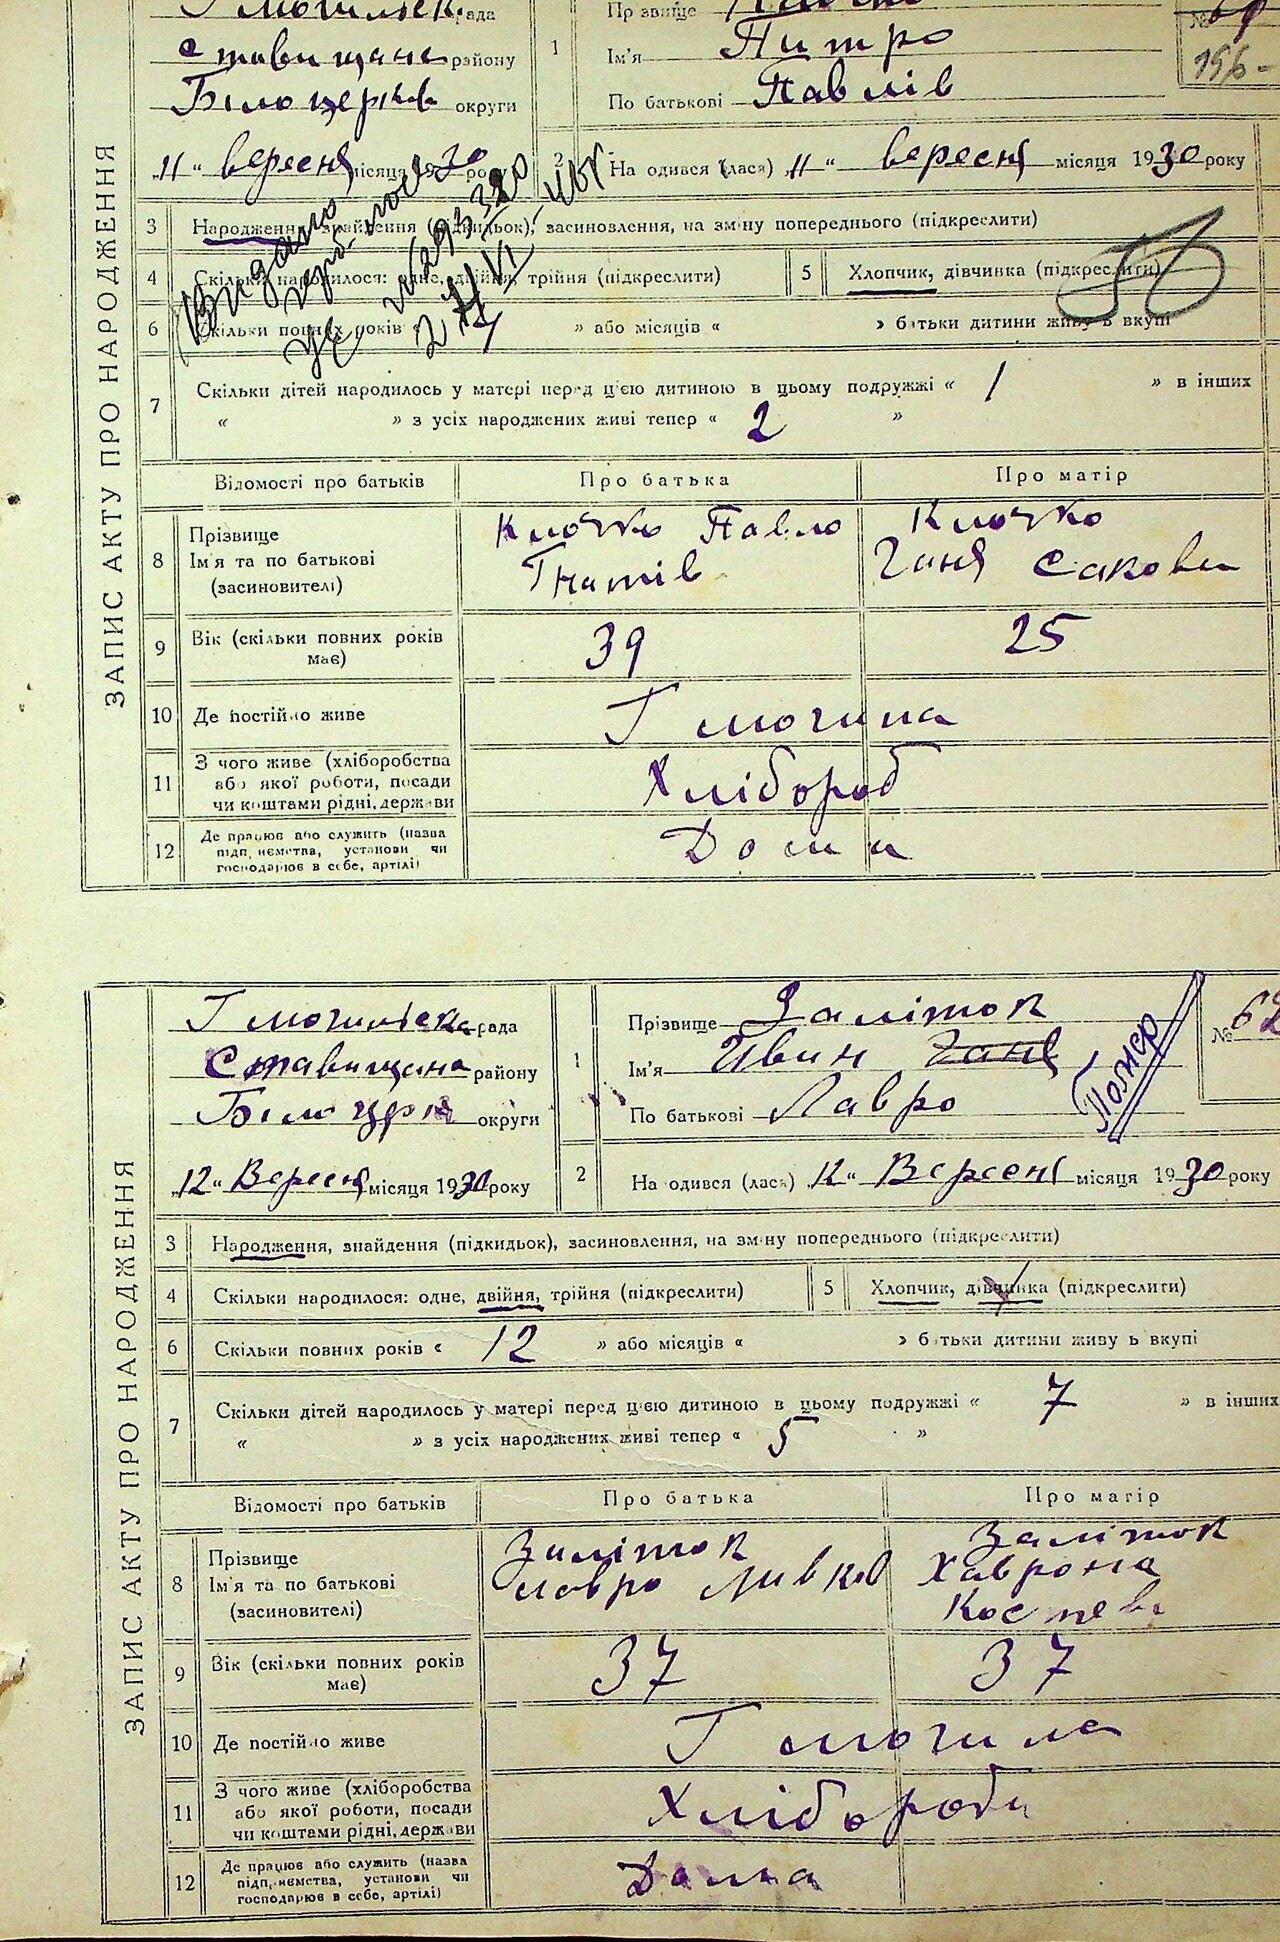 ЗАПИС АКТУ ПРО НАРОДЖЕННЯ
Г могильск. рада
Ставищане району
Білоцерків округи
„11“ вересня місяця 1930 року
1 Прізвище
Ім'я Питро
По батькові Павлів
196-
2 На одився (лася) „11“ вересня місяця 1930 року
3 Народження, знайдення (підкидьок), засиновлення, на зміну попереднього (підкреслити)
4 Скільки народилося: одне, двійня, трійня (підкреслити)
5 Хлопчик, дівчинка (підкреслити)
Видано
6 Скільки повних років «
» або місяців «
» батьки дитини живуть вкупі
7 Скільки дітей народилось у матері перед цією дитиною в цьому подружжі « 1 » в інших
« » з усіх народжених живі тепер « 2 »
Відомості про батьків Про батька Про матір
8 Прізвище Ключко Павло Ключко
Ім'я та по батькові Гнатів Ганя Сакови
(засиновителі)
9 Вік (скільки повних років 39 25
має)
10 Де постійно живе Г могила
11 З чого живе (хліборобства Хлібороб
або якої роботи, посади
чи коштами рідні, держави
12 Де працює або служить (назва Доми
підприємства, установи чи
господарює в себе, артілі)
ЗАПИС АКТУ ПРО НАРОДЖЕННЯ
Г могильска рада
Ставищана району
Білоцркв округи
„12“ Вересня місяця 1930 року
1 Прізвище Заліток
Ім'я Иван Ганя
По батькові Лавро
Помер
№ 62
2 На одився (лася) 12“ Вересня місяця 1930 року
3 Народження, знайдення (підкидьок), засиновлення, на зміну попереднього (підкреслити)
4 Скільки народилося: одне, двійня, трійня (підкреслити)
5 Хлопчик, дівчинка (підкреслити)
6 Скільки повних років « 12 » або місяців « » батьки дитини живуть вкупі
7 Скільки дітей народилось у матері перед цією дитиною в цьому подружжі « 7 » в інших
« » з усіх народжених живі тепер « 5 »
Відомості про батьків Про батька Про матір
8 Прізвище Заліток Заліток
Ім'я та по батькові Лавро Хаврона
(засиновителі) Костеви
9 Вік (скільки повних років 37 37
має)
10 Де постійно живе Г могила
11 З чого живе (хліборобства Хлібороби
або якої роботи, посади
чи коштами рідні, держави
12 Де працює або служить (назва Дома
підприємства, установи чи
господарює в себе, артілі)